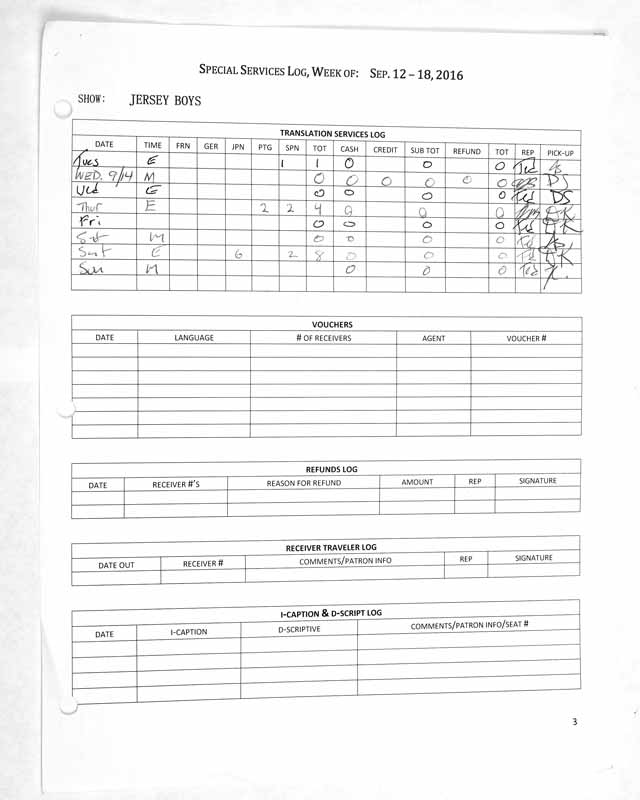 SPECIAL SERVICES LOG, WEEK OF: SEP. 12 – 18, 2016
SHOW: JERSEY BOYS
TRANSLATION SERVICES LOG
DATE TIME FRN GER JPN PTG SPN TOT CASH CREDIT SUB TOT REFUND TOT REP PICK-UP
Tues E 1 1 0 0 0 Ted
WED. 9/14 M 0 0 0 0 0 0 DS
Wed E 0 0 0 0 Ted DS
Thur E 2 2 4 0 0 0 DK
Fri 0 0 0 0 Ted DK
Sat M 0 0 0 0 Ted
Sat E 6 2 8 0 0 0 Ted DK
Sun M 0 0 0 Ted
VOUCHERS
DATE LANGUAGE # OF RECEIVERS AGENT VOUCHER #
REFUNDS LOG
DATE RECEIVER #'S REASON FOR REFUND AMOUNT REP SIGNATURE
RECEIVER TRAVELER LOG
DATE OUT RECEIVER # COMMENTS/PATRON INFO REP SIGNATURE
I-CAPTION & D-SCRIPT LOG
DATE I-CAPTION D-SCRIPTIVE COMMENTS/PATRON INFO/SEAT #
3